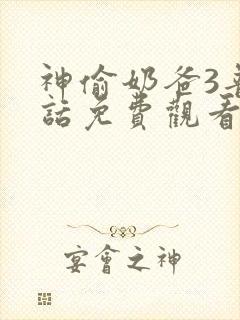 神偷奶爸3普
話免費觀看
宴會之神